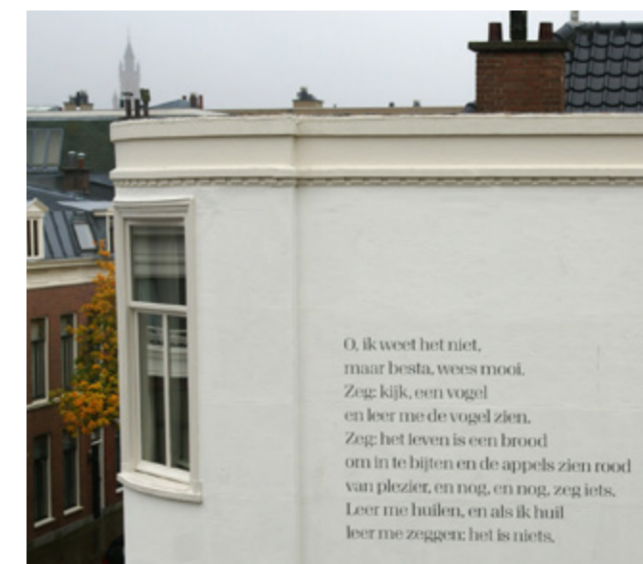 O, ik weet het niet,
maar besta, wees mooi.
Zeg: kijk, een vogel
en leer me de vogel zien.
Zeg: het leven is een brood
om in te bijten en de appels zien rood
van plezier, en nog, en nog, zeg iets.
Leer me huilen, en als ik huil
leer me zeggen: het is niets.